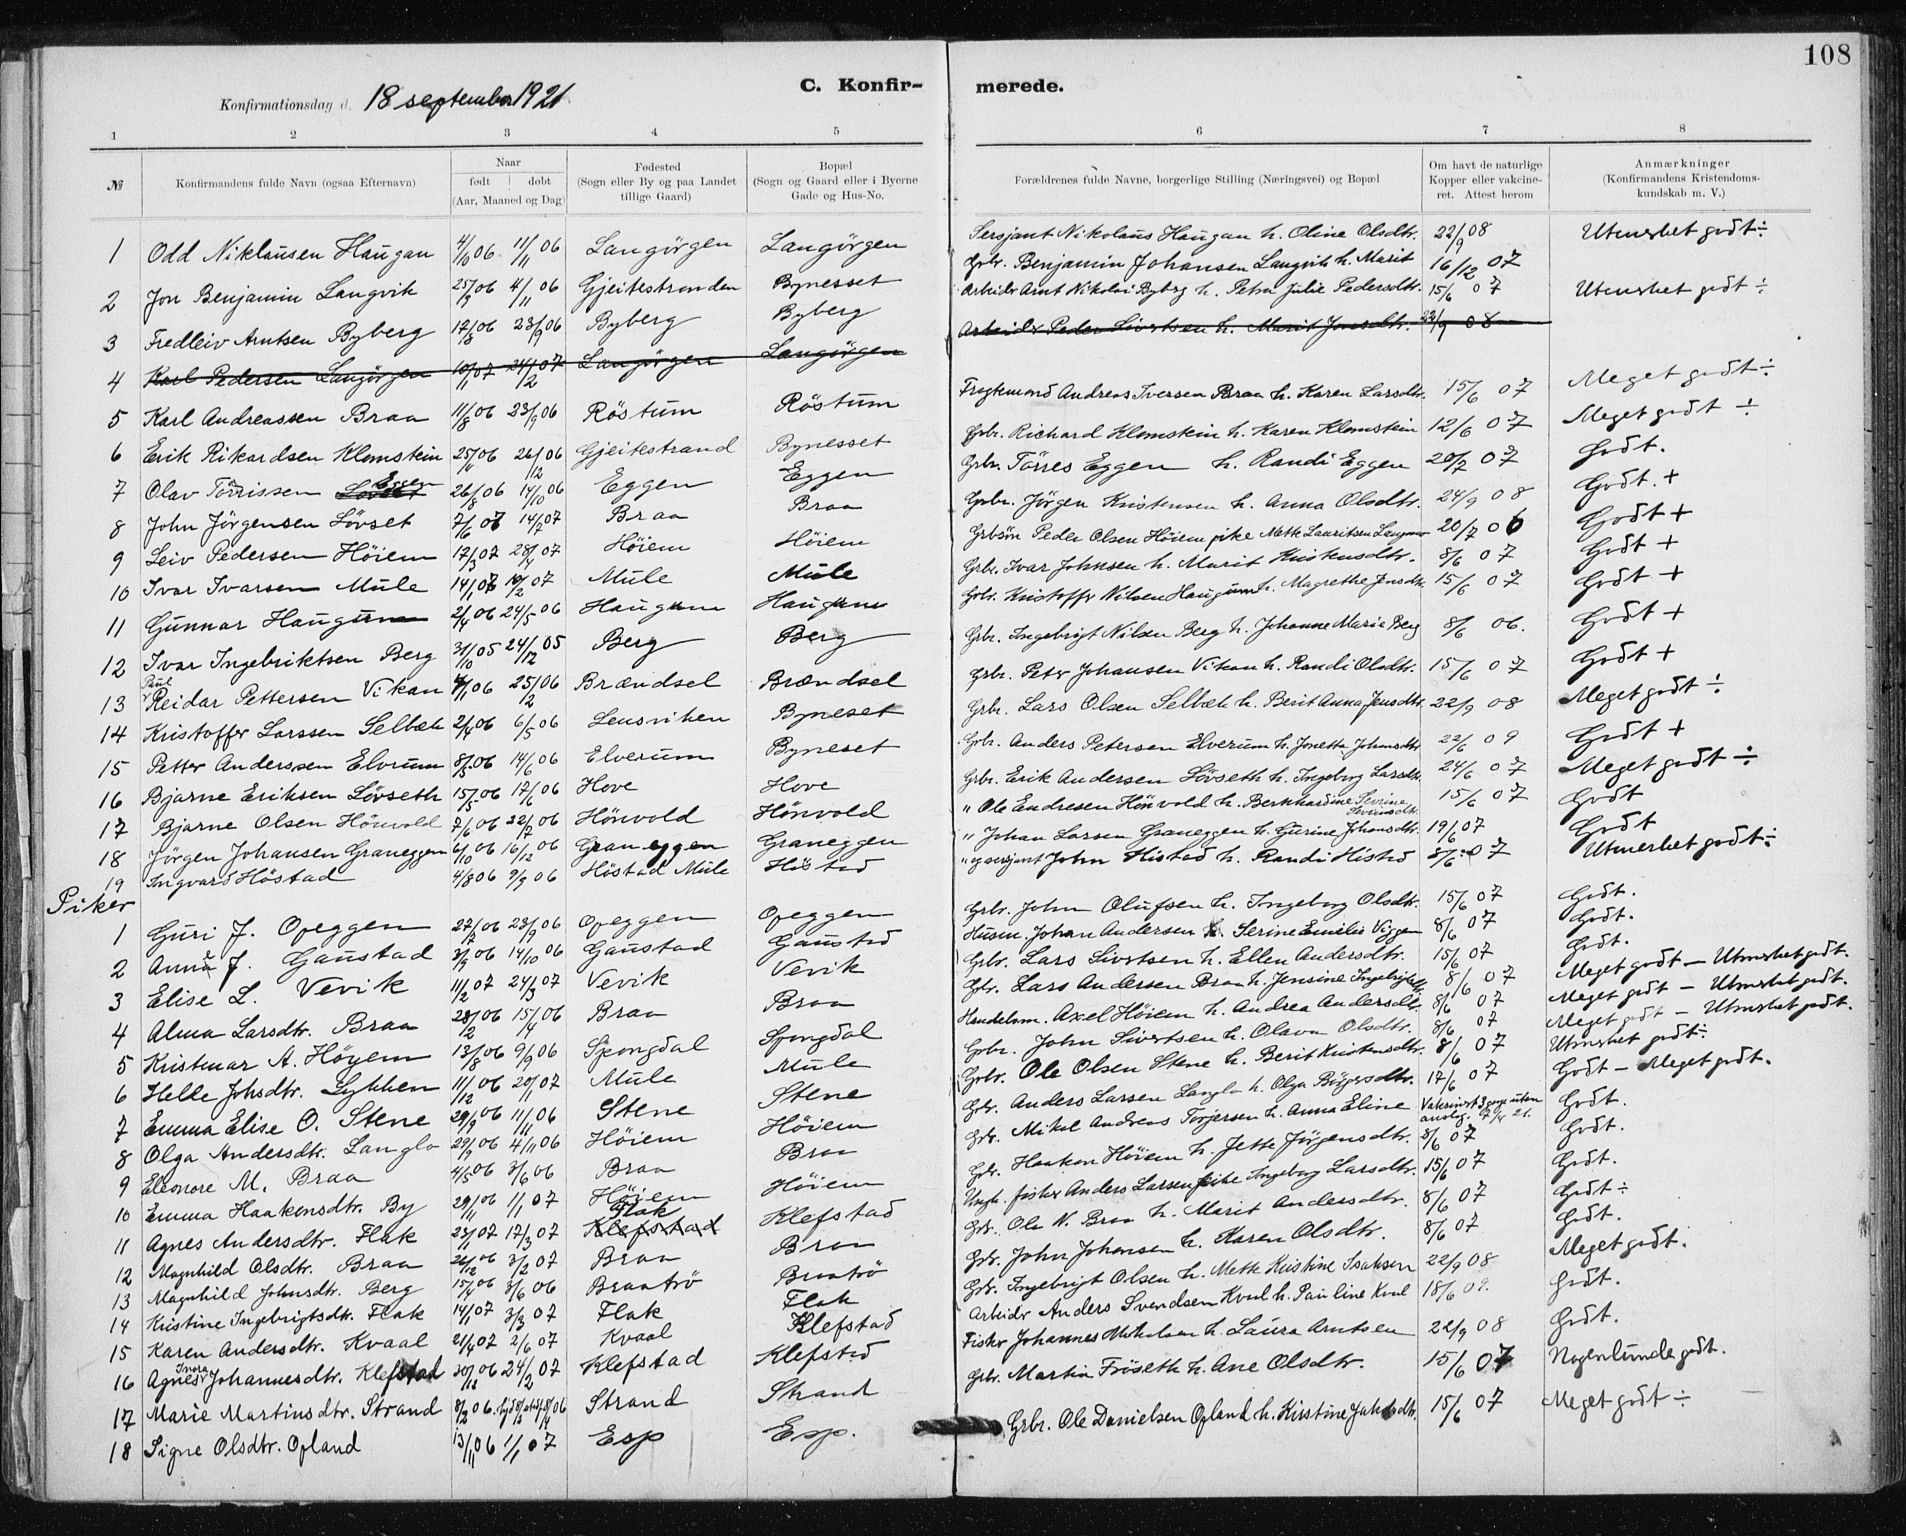 108
C. Konfir- merede.
Konfirmationsdag d. 18 september 1921
1 2 3 4 5 6 7 8
№ Konfirmandens fulde Navn (ogsaa Efternavn) Naar født døbt (Aar, Maaned og Dag) Fødested (Sogn eller By og paa Landet tillige Gaard) Bopæl (Sogn og Gaard eller i Byerne Gade og Hus-No. Forældrenes fulde Navne, borgerlige Stilling (Næringsvei) og Bopæl Om havt de naturlige Kopper eller vakcineret. Attest herom Anmærkninger (Konfirmandens Kristendomskundskab m. V.)
1 Odd Niklausen Haugan 4/10 06 11/11 06 Langörgen Langörgen Sersjant Nikolaus Haugan h. Oline Olsdtr. 22/9 08 Utmerket godt ÷
2 Jon Benjamin Langvik 25/9 06 4/11 06 Gjeitestranden Bynesset Grbr. Benjamin Johansen Langvik h. Marit 16/12 07
3 Fredleiv Arntsen Byberg 17/8 06 23/9 06 Byberg Byberg Arbeider Arnt Nikolai Byberg h. Petra Julie Pedersdtr. 15/6 07 Utmerket godt ÷
4 Karl Pedersen Langörgen 10/1 07 24/2 07 Langörgen Langörgen Arbeider Peder Sivertsen h. Marit Jonsdtr. 22/9 08
5 Karl Andreassen Braa 11/8 06 23/9 06 Röstum Röstum Fragtemand Andreas Iversen Braa h. Karen Larsdtr. 15/6 07 Meget godt ÷
6 Erik Rikardsen Klemstein 25/11 06 26/12 06 Gjeitestrand Bynesset Grbr. Richard Klemstein h. Karen Klemstein 12/6 07 Meget godt ÷
7 Olav Törrissen Lövset Eggen 26/8 06 14/10 06 Eggen Eggen Grbr. Törres Eggen h. Randi Eggen 20/7 07 Godt.
8 John Jörgensen Lövset 7/6 07 14/7 07 Braa Braa Grbr. Jörgen Kristensen h. Anna Olsdtr. 24/9 08 Godt. +
9 Leiv Pedersen Höiem 17/3 07 28/4 07 Höiem Höiem Grbsön Peder Olsen Höiem pike Mette Lauritsen 20/7 06 Godt +
10 Ivar Ivarsen Mule 14/1 07 10/2 07 Mule Mule Grbr. Ivar Johnsen h. Marit Kristensdtr. 8/6 07 Godt +
11 Gunnar Haugum 2/4 06 24/5 06 Haugum Haugum Grbr. Kristoffer Nilsen Haugum h. Magrethe Jensdtr. 15/6 07 Godt +
12 Ivar Ingebriktsen Berg 31/10 05 24/12 05 Berg Berg Grbr. Ingebrigt Nilsen Berg h. Johanne Marie Berg 8/6 06. Godt +
13 Paul Reidar Pettersen Vikan 4/1 06 25/2 06 Brændsel Brændsel Grbr. Peter Johansen Vikan h. Randi Olsdtr. 15/6 07 Godt +
14 Kristoffer Larssen Selbæk 2/4 06 6/5 06 Lensviken Byneset Grbr. Lars Olsen Selbæk h. Berit Anna Jensdtr. 22/9 08 Meget godt ÷
15 Petter Anderssen Elverum 8/5 06 14/6 06 Elverum Byneset Grbr. Anders Petersen Elverum h. Jonetta Johnsdtr 22/6 09 Godt +
16 Bjarne Eriksen Lövseth 15/5 06 17/6 06 Hove Hove Grbr. Erik Andersen Lövseth h. Ingeborg Larsdtr. 24/6 07 Meget godt ÷
17 Bjarne Olsen Hönvold 7/6 06 22/7 06 Hönvold Hönvold " Ole Endresen Hönvold h. Berkhardine Sevrine 15/6 07 Godt
18 Jörgen Johansen Graneggen 6/10 06 16/12 06 Graneggen Graneggen " Johan Larsen Graneggen h. Gurine Johansdtr. 19/6 07 Godt
19 Ingvard Höstad 4/8 06 9/9 06 Höstad Mule Höstad " og sersjant John Höstad h. Randi Höstad 8/6 07 Utmerket godt ÷
Piker
1 Guri J. Opeggen 27/7 06 23/9 06 Opeggen Opeggen Grbr. John Olufsen h. Ingeborg Olsdtr. 15/6 07 Godt.
2 Anna J. Gaustad 3/9 06 14/10 06 Gaustad Gaustad Husm. Johan Andersen h. Serine Emilie Viggen 8/6 07 Godt.
3 Elise L. Vevik 11/2 07 24/3 07 Vevik Vevik Grbr. Lars Sivertsen h. Ellen Andersdtr. 15/6 07 Godt.
4 Alma Larsdtr. Braa 28/2 06 15/4 06 Braa Braa Gbr. Lars Andersen Braa h. Jensine Ingebrigtsdtr. 8/6 07 Meget godt – Utmerket godt.
5 Kristmar A. Höyem 13/8 06 9/9 06 Spongdal Spongdal Handelsm. Axel Höiem h. Andrea Andersdtr. 8/6 07 Meget godt – Utmerket godt.
6 Helle Johsdtr. Lykken 11/12 06 20/1 07 Mule Mule Grbr. John Sivertsen h. Olava Olsdtr. 8/6 07 Meget godt – Utmerket godt.
7 Emma Elise O. Stene 29/9 06 11/11 06 Stene Stene Grbr. Ole Olsen Stene h. Berit Kristensdtr. 8/6 07 Utmerket godt ÷
8 Olga Andersdtr. Langlo 29/9 06 4/11 06 Höiem Höiem Gbr. Anders Larsen Langlo h. Olga Börgersdtr. 17/6 07 Godt – Meget godt.
9 Eleonore M. Braa 4/5 06 3/6 06 Braa Braa Gbr. Mikal Andreas Torgersen h. Anna Eline Vaksinert 3 gange uten anslag. 7/4 21. Godt.
10 Emma Haakensdtr. By 29/11 06 1/1 07 Höiem Höiem Gbr. Haakon Höiem h. Jette Jörgensdtr. 8/6 07 Godt.
11 Agnes Andersdtr. Flak 23/1 07 17/3 07 Klefstad Flak Klefstad Ungk. fisker Anders Larsen pike Ingeborg Larsdtr. 15/6 07 Godt.
12 Magnhild Olsdtr. Braa 26/12 06 3/2 07 Braa Braa Gbr. Ole N. Braa h. Marit Andersdtr. 8/6 07 Godt ÷
13 Magnhild Johnsdtr. Berg 15/4 06 3/6 06 Braatrö Braatrö Gbr. John Johansen h. Karen Olsdtr. 8/6 07 Godt.
14 Kristine Ingebrigtsdtr. Flak 14/1 07 3/3 07 Flak Flak Gbr. Ingebrigt Olsen h. Mette Kristine Isaksen 22/9 08 Meget godt.
15 Karen Andersdtr. Kvaal 21/4 07 2/6 07 Kvaal Klefstad Arbeider Anders Svendsen Kvaal h. Pauline Kvaal 18/6 09. Godt.
16 Agnes Inora Johannesdtr. Klefstad 30/12 06 24/2 07 Klefstad Klefstad Fisker Johannes Mikalsen h. Laura Arntsen 22/9 08 Godt.
17 Marie Martinsdtr. Strand 8/2 06. Strand Strand Grbr. Martin Fröseth h. Ane Olsdtr. 15/6 07 Nogenlunde godt.
18 Signe Olsdtr. Opland 13/11 06 1/1 07 Esp Esp. Grbr. Ole Danielsen Opland h. Kirstine Jakobsdtr. 15/6 07 Meget godt ÷